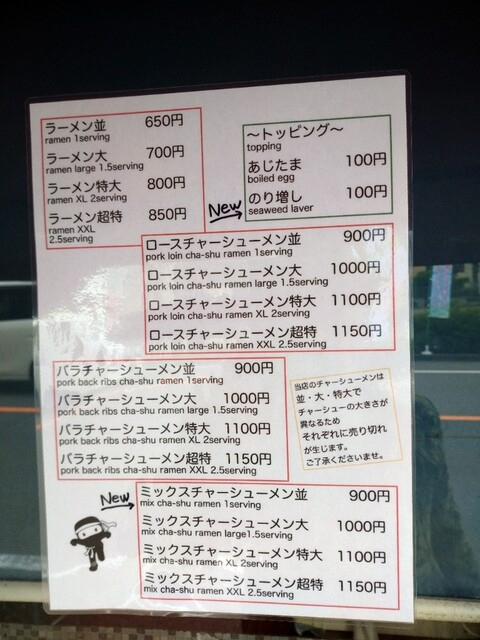 ラーメン並 650円
ramen 1serving
ラーメン大 700円
ramen large 1.5serving
ラーメン特大 800円
ramen XL 2serving
ラーメン超特 850円
ramen XXL
2.5serving
～トッピング～
topping
あじたま 100円
boiled egg
のり増し 100円
seaweed laver
New
ロースチャーシューメン並 900円
pork loin cha-shu ramen 1serving
ロースチャーシューメン大 1000円
pork loin cha-shu ramen large 1.5serving
ロースチャーシューメン特大 1100円
pork loin cha-shu ramen XL 2serving
ロースチャーシューメン超特 1150円
pork loin cha-shu ramen XXL 2.5serving
バラチャーシューメン並 900円
pork back ribs cha-shu ramen 1serving
バラチャーシューメン大 1000円
pork back ribs cha-shu ramen large 1.5serving
バラチャーシューメン特大 1100円
pork back ribs cha-shu ramen XL 2serving
バラチャーシューメン超特 1150円
pork back ribs cha-shu ramen XXL 2.5serving
当店のチャーシューメンは
並・大・特大で
チャーシューの大きさが
異なるため
それぞれに売り切れ
が生じます。
ご了承くださいませ。
New
ミックスチャーシューメン並 900円
mix cha-shu ramen 1serving
ミックスチャーシューメン大 1000円
mix cha-shu ramen large1.5serving
ミックスチャーシューメン特大 1100円
mix cha-shu ramen XL 2serving
ミックスチャーシューメン超特 1150円
mix cha-shu ramen XXL 2.5serving